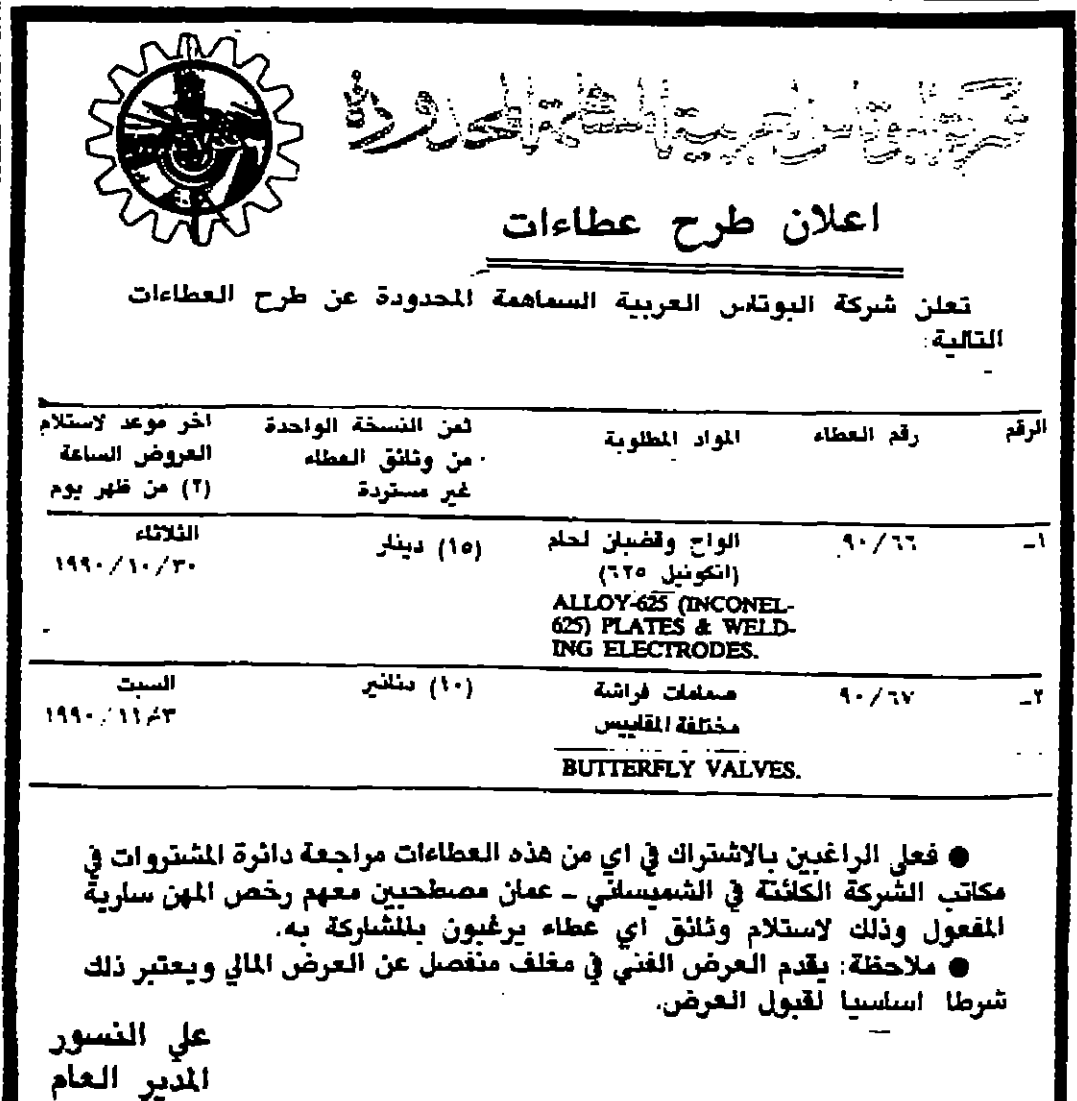 شركة البوتاس العربية المساهمة المحدودة
اعلان طرح عطاءات
تعلن شركة البوتاس العربية السماهمة المحدودة عن طرح العطاءات
التالية:
الرقم
رقم العطاء
المواد المطلوبة
ثمن النسخة الواحدة
من وثائق العطاء
غير مستردة
اخر موعد لاستلام
العروض الساعة
(٢) من ظهر يوم
١-
٩٠/٦٦
الواح وقضبان لحام
(انكونيل ٦٢٥)
ALLOY-625 (INCONEL-
625) PLATES & WELD-
ING ELECTRODES.
(١٥) دينار
الثلاثاء
١٩٩٠/١٠/٣٠
٢-
٩٠/٦٧
صمامات فراشة
مختلفة المقاييس
BUTTERFLY VALVES.
(١٠) دنانير
السبت
١٩٩٠/١١/٣
● فعلى الراغبين بالاشتراك في اي من هذه العطاءات مراجعة دائرة المشتروات في
مكاتب الشركة الكائنة في الشميساني - عمان مصطحبين معهم رخص المهن سارية
المفعول وذلك لاستلام وثائق اي عطاء يرغبون بالمشاركة به.
● ملاحظة: يقدم العرض الفني في مغلف منفصل عن العرض المالي ويعتبر ذلك
شرطا اساسيا لقبول العرض.
علي النسور
المدير العام